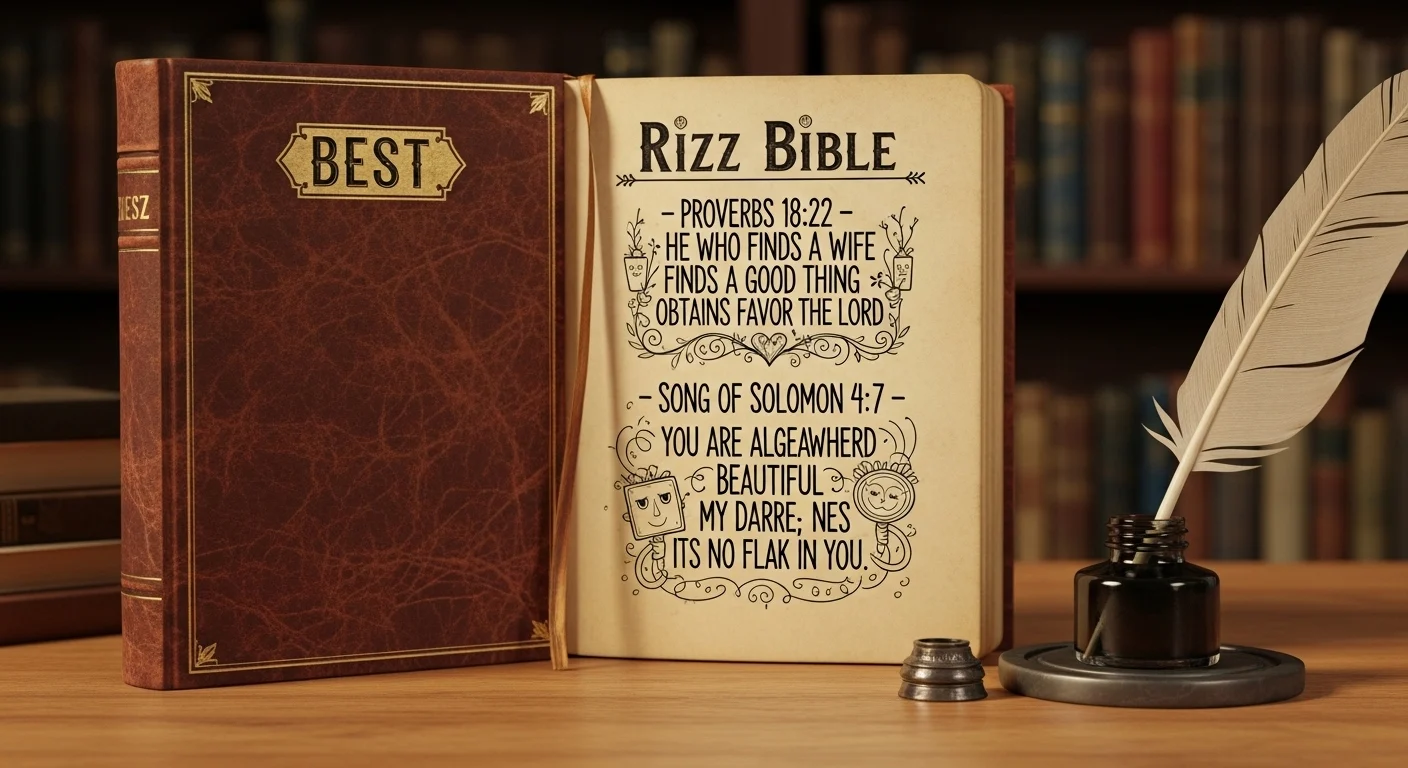 BEST
RIZZ BIBLE
– PROVERBS 18:22 –
HE WHO FINDS A WIFE
FINDS A GOOD THING
OBTAINS FAVOR THE LORD
– SONG OF SOLOMON 4:7 –
YOU ARE ALGEAWHERD
BEAUTIFUL
MY DARRE; NES
ITS NO FLAK IN YOU.